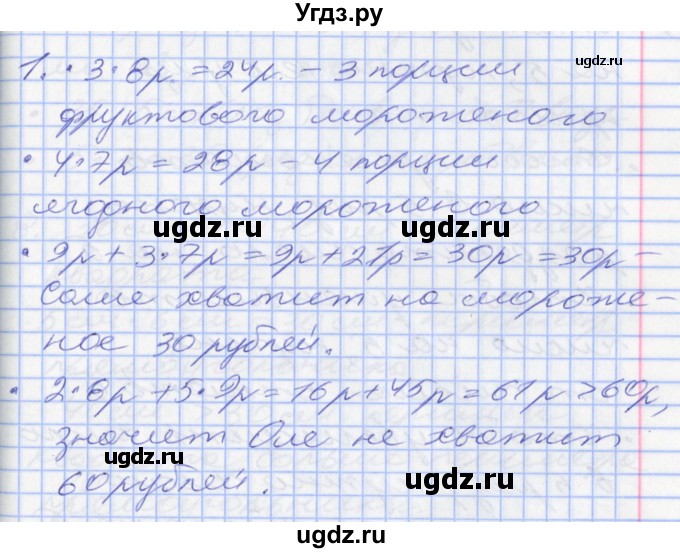 Угдз.ру
1. • 3 • 8р. = 24р. – 3 порции
фруктового мороженого
• 4 • 7р = 28р – 4 порции
ягодного мороженого
ugdz.ru ugdz.ru
• 9р + 3 • 7р = 9р + 21р = 30р = 30р –
Саше хватит на мороже-
ное 30 рублей.
ugdz.ru ugdz.ru
• 2 • 8р + 5 • 9р = 16р + 45р = 61р > 60р,
значит Оле не хватит
60 рублей.
ugdz.ru ugdz.ru
ugdz.ru